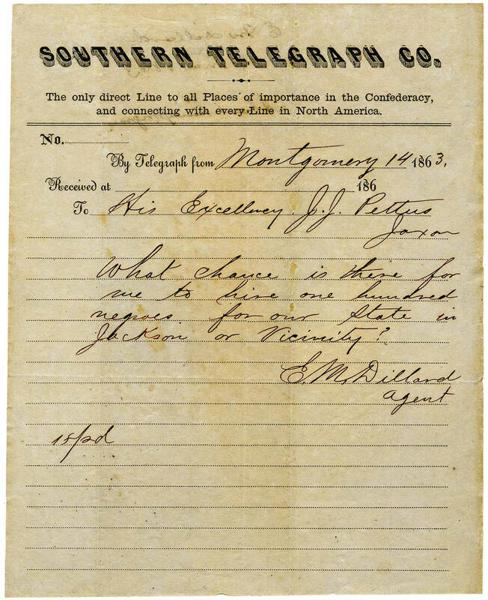 SOUTHERN TELEGRAPH CO.
The only direct Line to all Places of importance in the Confederacy,
and connecting with every Line in North America.
No.
By Telegraph from Montgomery 14 1863.
Received at 186
To His Excellency J. J. Pettus
Jaxon
What chance is there for
me to hire one hundred
negroes for our State in
Jackson or Vicinity?
E. M. Dillard
agent
15/pd